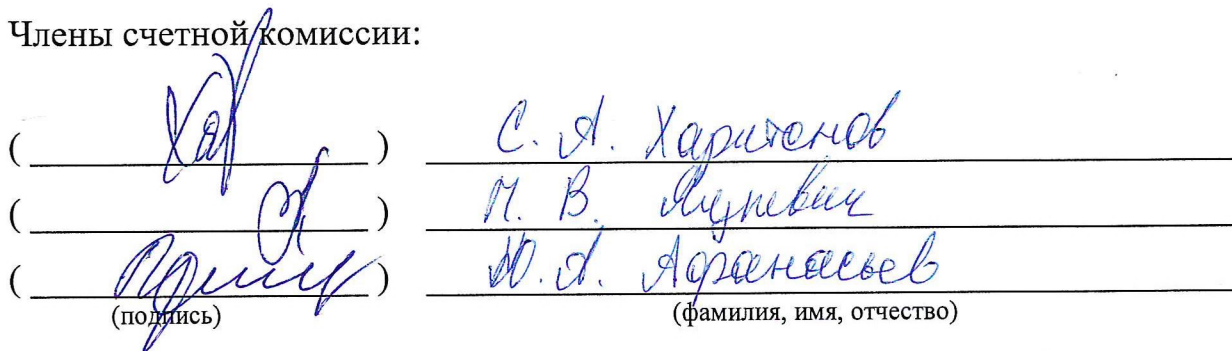 Члены счетной комиссии:
( ) С. А. Харитонов
( ) В.
( ) Ю. А. Афанасьев
(подпись) (фамилия, имя, отчество)